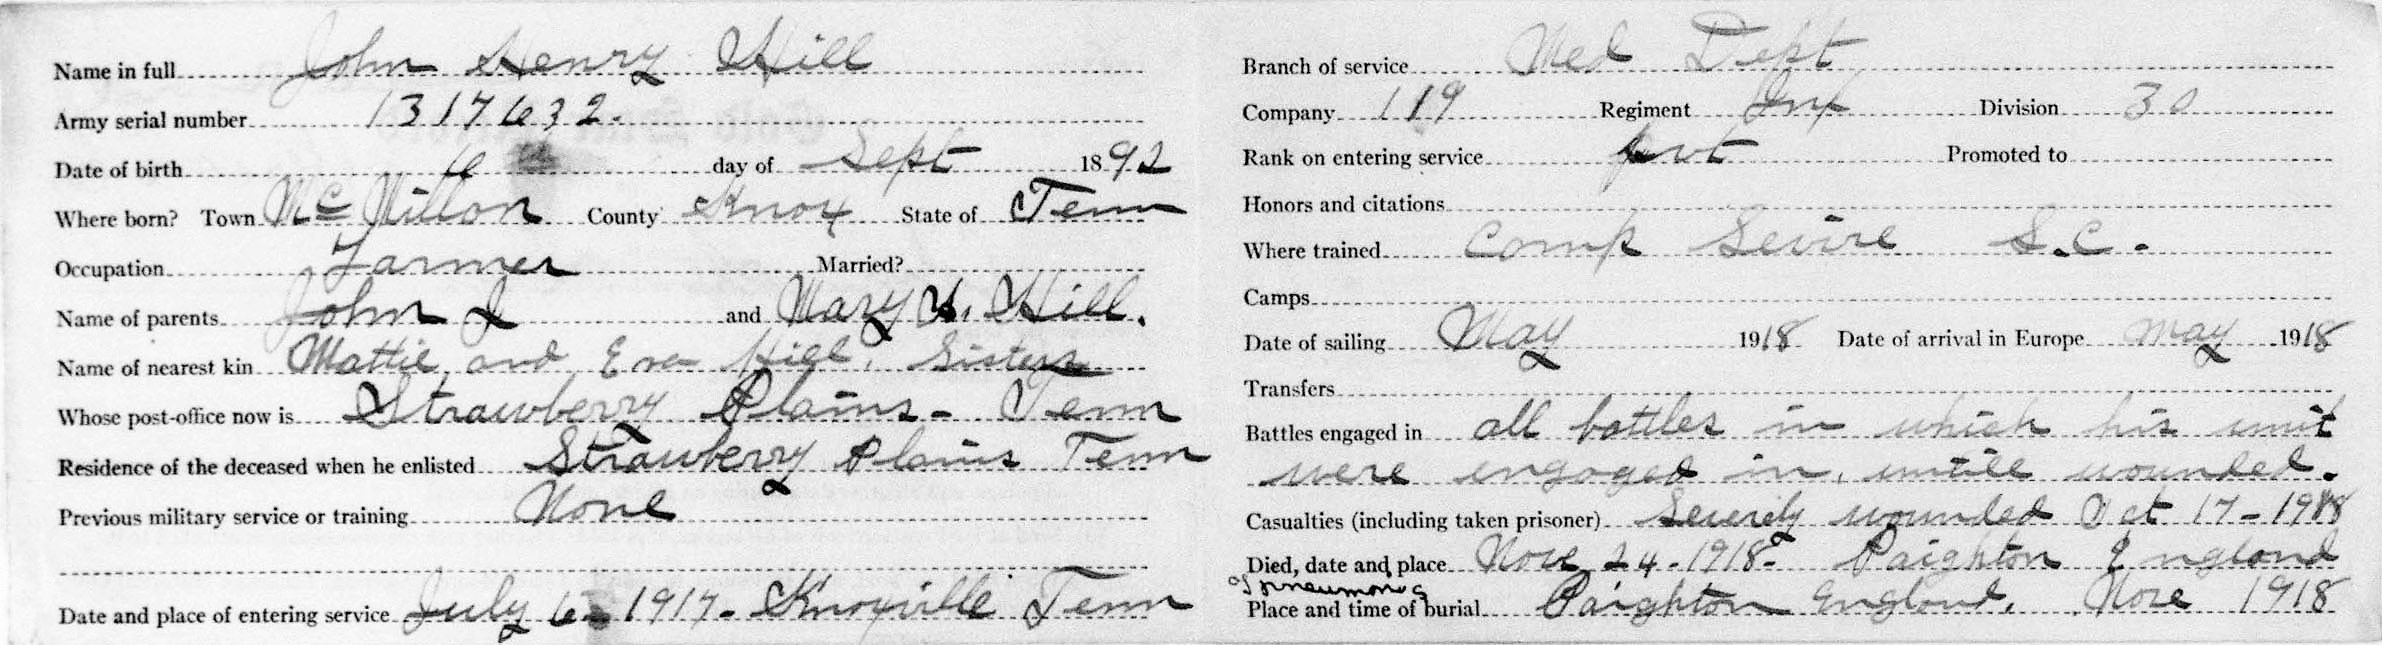 Name in full John Henry Hill
Army serial number 1317632.
Date of birth 6 th day of Sept 1892
Where born? Town McMillon County Knox State of Tenn
Occupation Farmer Married?
Name of parents John J and Mary H. Hill.
Name of nearest kin Mattie and Eva Hill. Sisters
Whose post-office now is Strawberry Plains - Tenn
Residence of the deceased when he enlisted Strawberry Plains Tenn
Previous military service or training None
Date and place of entering service July 6 - 1917 - Knoxville Tenn
Branch of service Med Dept
Company 119 Regiment Inf Division 30
Rank on entering service pvt Promoted to
Honors and citations
Where trained Camp Sevire S.C.
Camps
Date of sailing May 1918 Date of arrival in Europe May 1918
Transfers
Battles engaged in all battles in which his unit
were engaged in, untill wounded.
Casualties (including taken prisoner) Severely wounded Oct 17 - 1918
Died, date and place Nov. 24 - 1918 - Paighton England
of pneumonia
Place and time of burial Paighton England. Nov. 1918